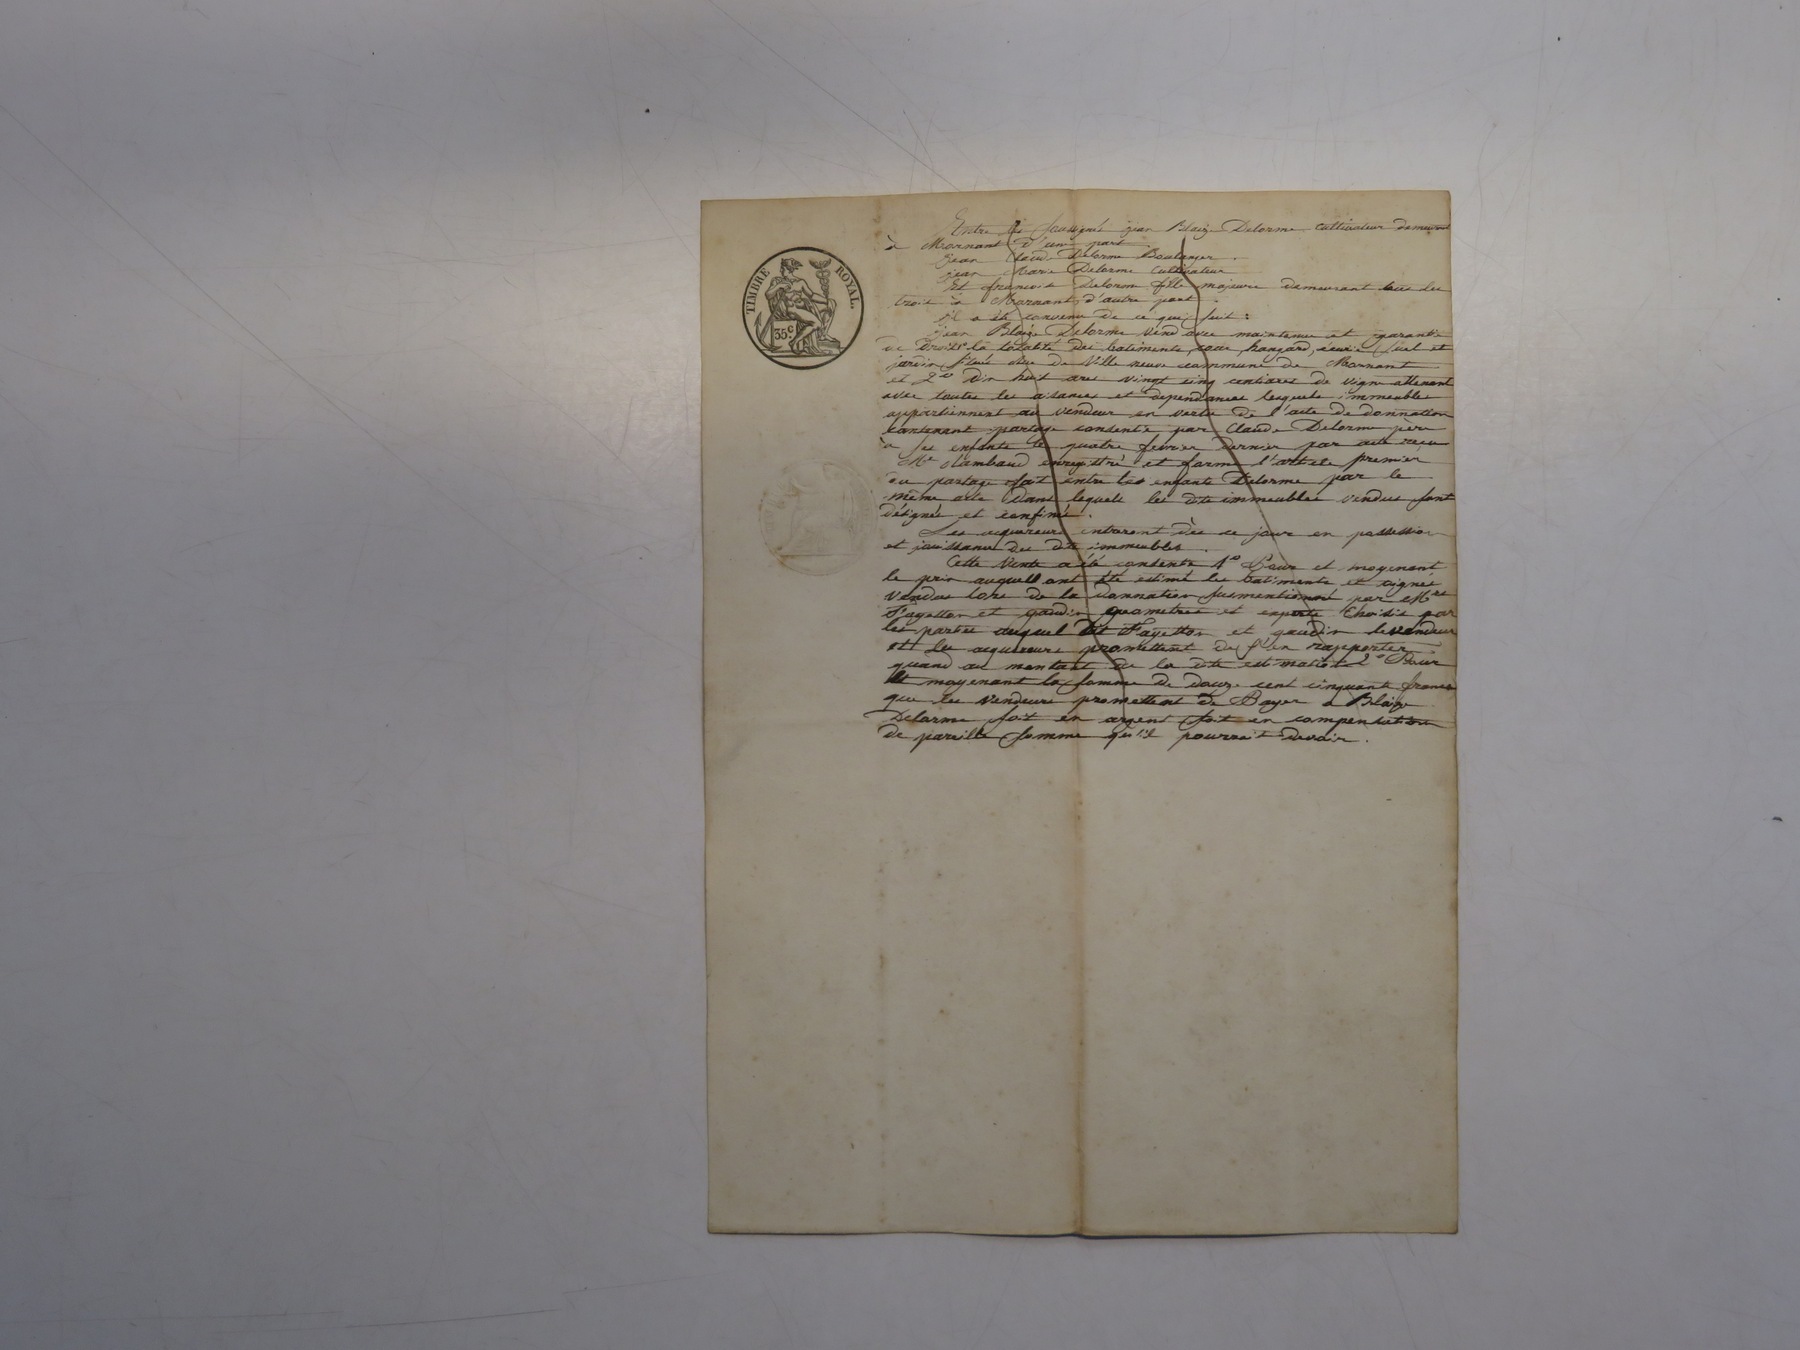 TIMBRE ROYAL
35 c.
Entre les soussigné jean Blaize Delorme cultivateur demeurant
à Mornant d'un part
jean Claud Delorme Boulanger.
jean Marie Delorme Cultivateur
Et françoise Delorm fille majeure demeurant tous les
trois à Mornant, d'autre part.
il a été convenu de ce qui suit :
jean Blaize Delorme vend avec maintenue et garantie
de droits la totalité des batiments, cour, hangard, écurie, suel et
jardin situé de Ville neuve commune de Mornant
et 2° dix huit ares vingt cinq centiares de vigne attenant
avec toutes les aisances et dependances lesquels immeubles
appartiennent au vendeur en vertu de l'acte de donnation
contenant partage consentie par Claude Delorme père
à ses enfants le quatre fevrier dernier par acte reçu
Me Rambaud enregistré et forme l'article premier
du partage fait entre les enfants Delorme par le
même acte dans lequels les dits immeubles vendus sont
désignés et confiné.
Les acquereurs entreront dès ce jour en possession
et jouissance des dits immeubles.
Cette Vente a été consentie 1° Pour et moyenant
le prix auquel ont été estimé les batiments et vignes
vendus lors de la donnation susmentionné par Mrs
Fayetton et gaudin geometres et experts choisis par
les parties auquel dit Fayetton et gaudin le vendeur
et les acquereurs promettent de s'en rapporter
quand au montant de la dite estimation 2° Pour
Et moyenant la somme de douze cent cinquante francs
que les vendeurs promettent de Payer à Blaize
Delorme soit en argent soit en compensation
de pareille somme qu'il pourrait devoir.